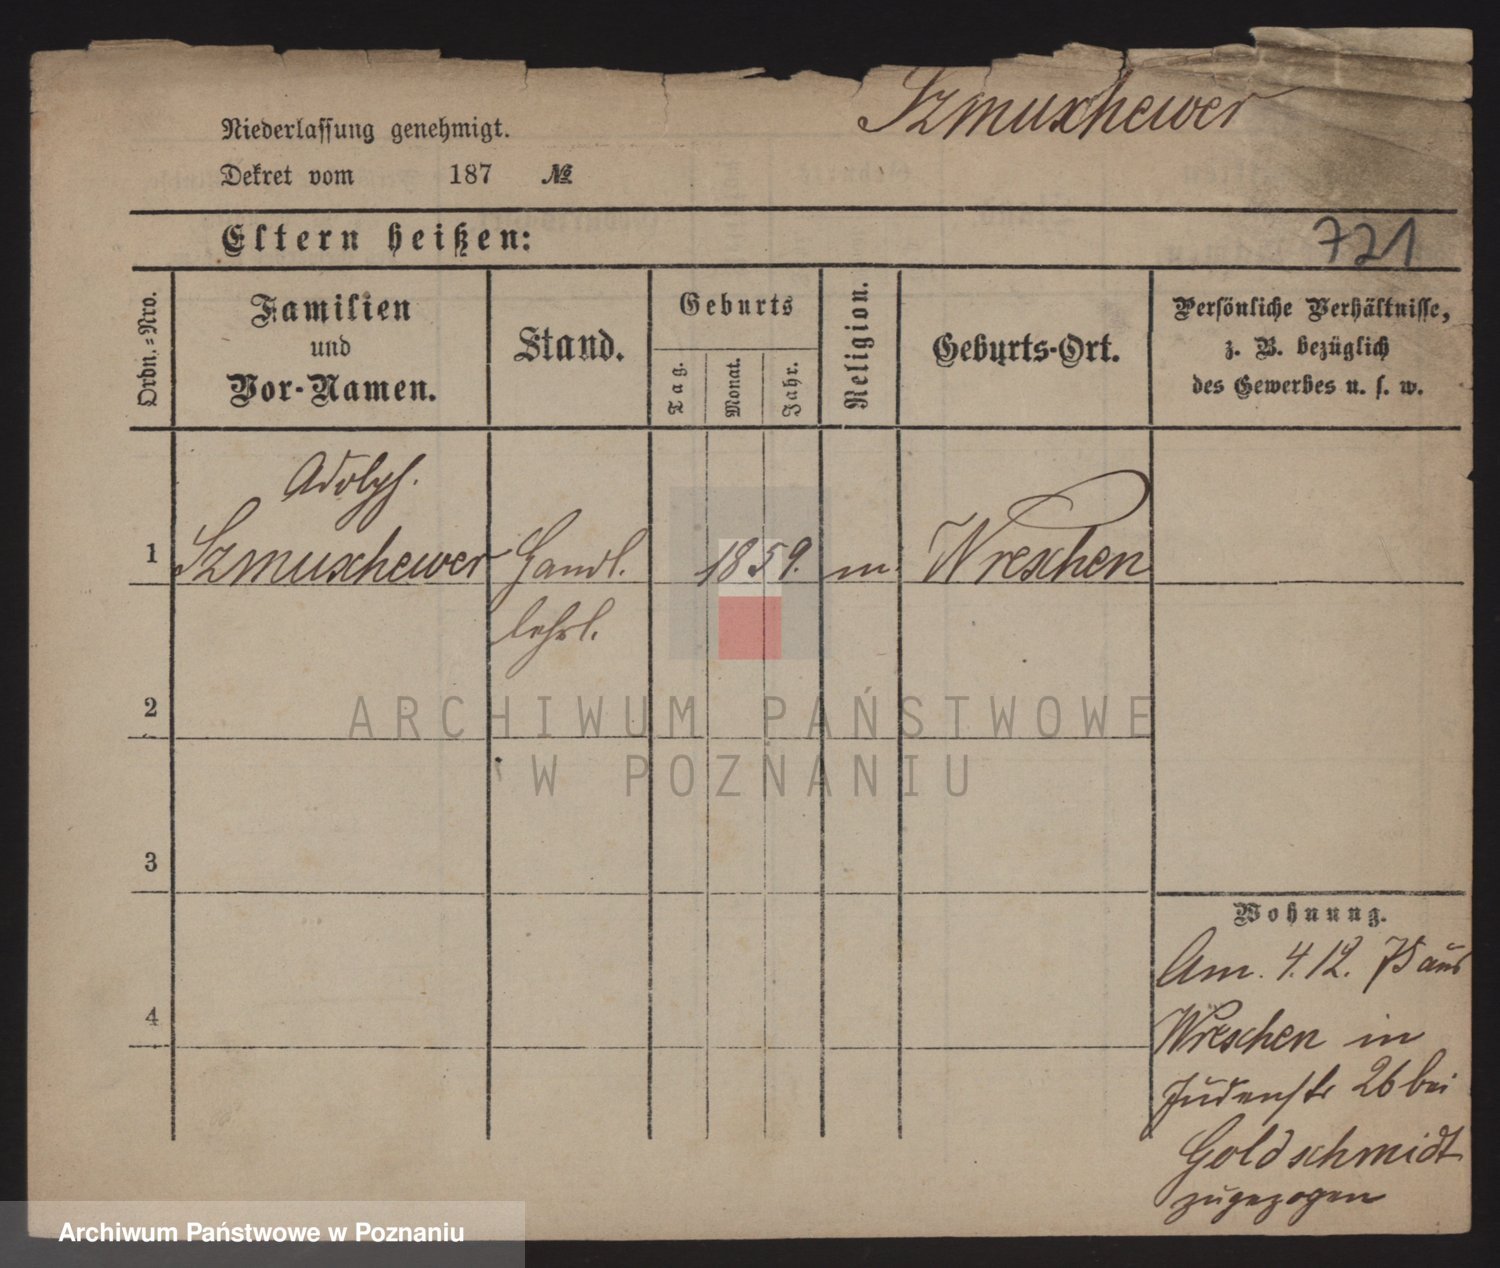 Szmuschewer
Niederlassung genehmigt.
Dekret vom 187 №
Eltern heißen:
721
Ordn.-Nro.
Familien
und
Vor-Namen.
Stand.
Geburts
Tag.
Monat.
Jahr.
Religion.
Geburts-Ort.
Persönliche Verhältnisse,
z. B. bezüglich
des Gewerbes u. s. w.
Adolph.
1 Szmuschewer Handl. 1859. m. Wreschen
lehrl.
2
3
4
Wohnung.
Am. 4. 12. 75 aus
Wreschen in
Judenstr 26 bei
Goldschmidt
zugezogen
ARCHIWUM PAŃSTWOWE
W POZNANIU
Archiwum Państwowe w Poznaniu